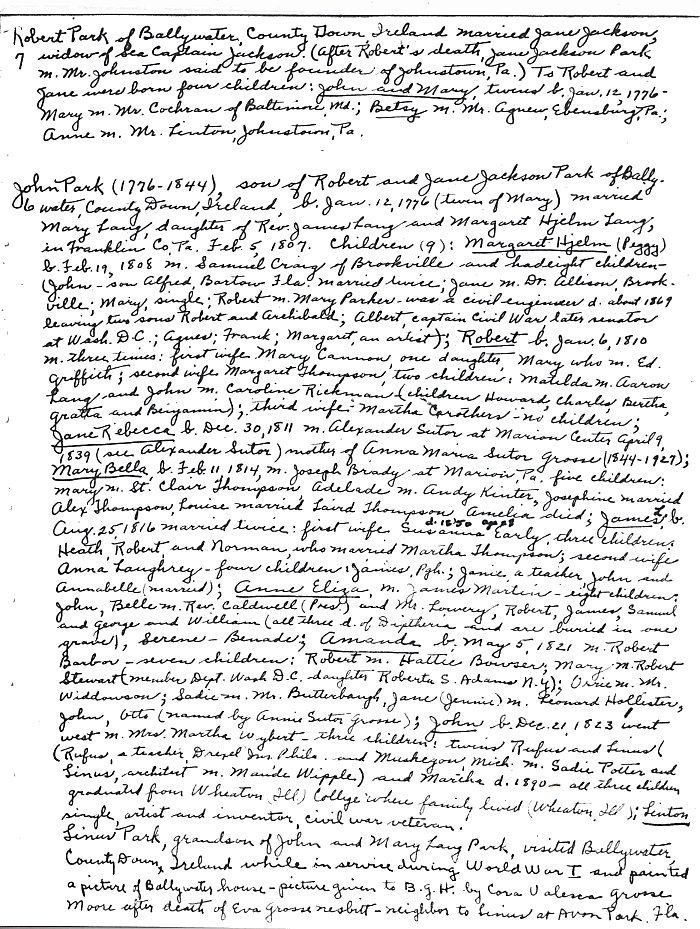 Robert Park of Ballywater, County Down Ireland married Jane Jackson,
7 widow of Sea Captain Jackson. (After Robert's death, Jane Jackson Park
m. Mr. Johnston said to be founder of Johnstown, Pa.) To Robert and
Jane were born four children: John and Mary, twins b. Jan. 12, 1776-
Mary m. Mr. Cochran of Baltimore, Md.; Betsy m. Mr. Agnew, Ebensburg, Pa.;
Anne m. Mr. Linton, Johnstown, Pa.
John Park (1776-1844), son of Robert and Jane Jackson Park of Bally-
6 water, County Down, Ireland, b. Jan. 12, 1776 (twin of Mary) married
Mary Lang, daughter of Rev. James Lang and Margaret Hjelm Lang,
in Franklin Co, Pa. Feb. 5, 1807. Children (9): Margaret Hjelm (Peggy)
b. Feb. 19, 1808 m. Samuel Craig of Brookville and had eight children-
(John - son Alfred, Bartow Fla. married twice; Jane m. Dr. Allison, Brook-
ville; Mary, single; Robert m. Mary Parker - was a civil engineer d. about 1869
leaving two sons Robert and Archibald; Albert, captain Civil War later senator
at Wash. D.C.; Agnes; Frank; Margaret, an artist); Robert b. Jan. 6, 1810
m. three times: first wife Mary Cannon, one daughter, Mary who m. Ed.
Griffith; second wife Margaret Thompson, two children: Matilda m. Aaron
Lang and John m. Caroline Rickman (children Howard, Charles, Bertha,
Gratta and Benjamin); third wife Martha Corothers - no children;
Jane Rebecca b. Dec. 30, 1811 m. Alexander Sutor at Marion Center April 9,
1839 (see Alexander Sutor) mother of Anna Maria Sutor Grosse (1844-1927);
Mary Bella, b. Feb. 11, 1814, m. Joseph Brady at Marion, Pa. five children:
Mary m. St. Clair Thompson, Adelade m. Andy Kinter, Josephine married
Alex Thompson, Louise married Laird Thompson, Amelia died; James L. b.
Aug. 25, 1816 married twice: first wife Susanna Early, three children,
d. 1850
Heath, Robert, and Norman, who married Martha Thompson; second wife
Anna Laughrey - four children: James, Pgh.; Janie, a teacher, John and
Annabelle (married); Anne Eliza, m. James Martin - eight children:
John, Belle m. Rev. Caldwell (Pres.) and Mr. Lowery, Robert, James, Samuel
and George and William (all three d. of Diptheria and are buried in one
grave), Serene - Benade; Amanda b. May 5, 1821 m. Robert
Barbor - seven children: Robert m. Hattie Bowser; Mary m. Robert
Stewart (member Dept. Wash D.C. daughter Roberta S. Adams N.Y.); Orrie m. Mr.
Widdowson; Sadie m. Mr. Butterbaugh, Jane (Jennie) m. Leonard Hollister,
John, Otto (named by Annie Sutor Grosse); John b. Dec. 21, 1823 went
west m. Mrs. Martha Wybert - three children: twins Rufus and Linus (
(Rufus, a teacher, Drexel Ins. Phila. and Muskegon, Mich. m. Sadie Potter and
Linus, architect m. Maude Wipple) and Martha d. 1890 - all three children
graduated from Wheaton (Ill) College where family lived (Wheaton, Ill); Linton,
single, artist and inventor, civil war veteran.
Linus Park, grandson of John and Mary Lang Park, visited Ballywater,
County Down, Ireland while in service during World War I and painted
a picture of Ballywater house - picture given to B.G.H. by Cora Valesca Grosse
Moore after death of Eva Grosse Nesbitt - neighbor to Linus at Avon Park, Fla.